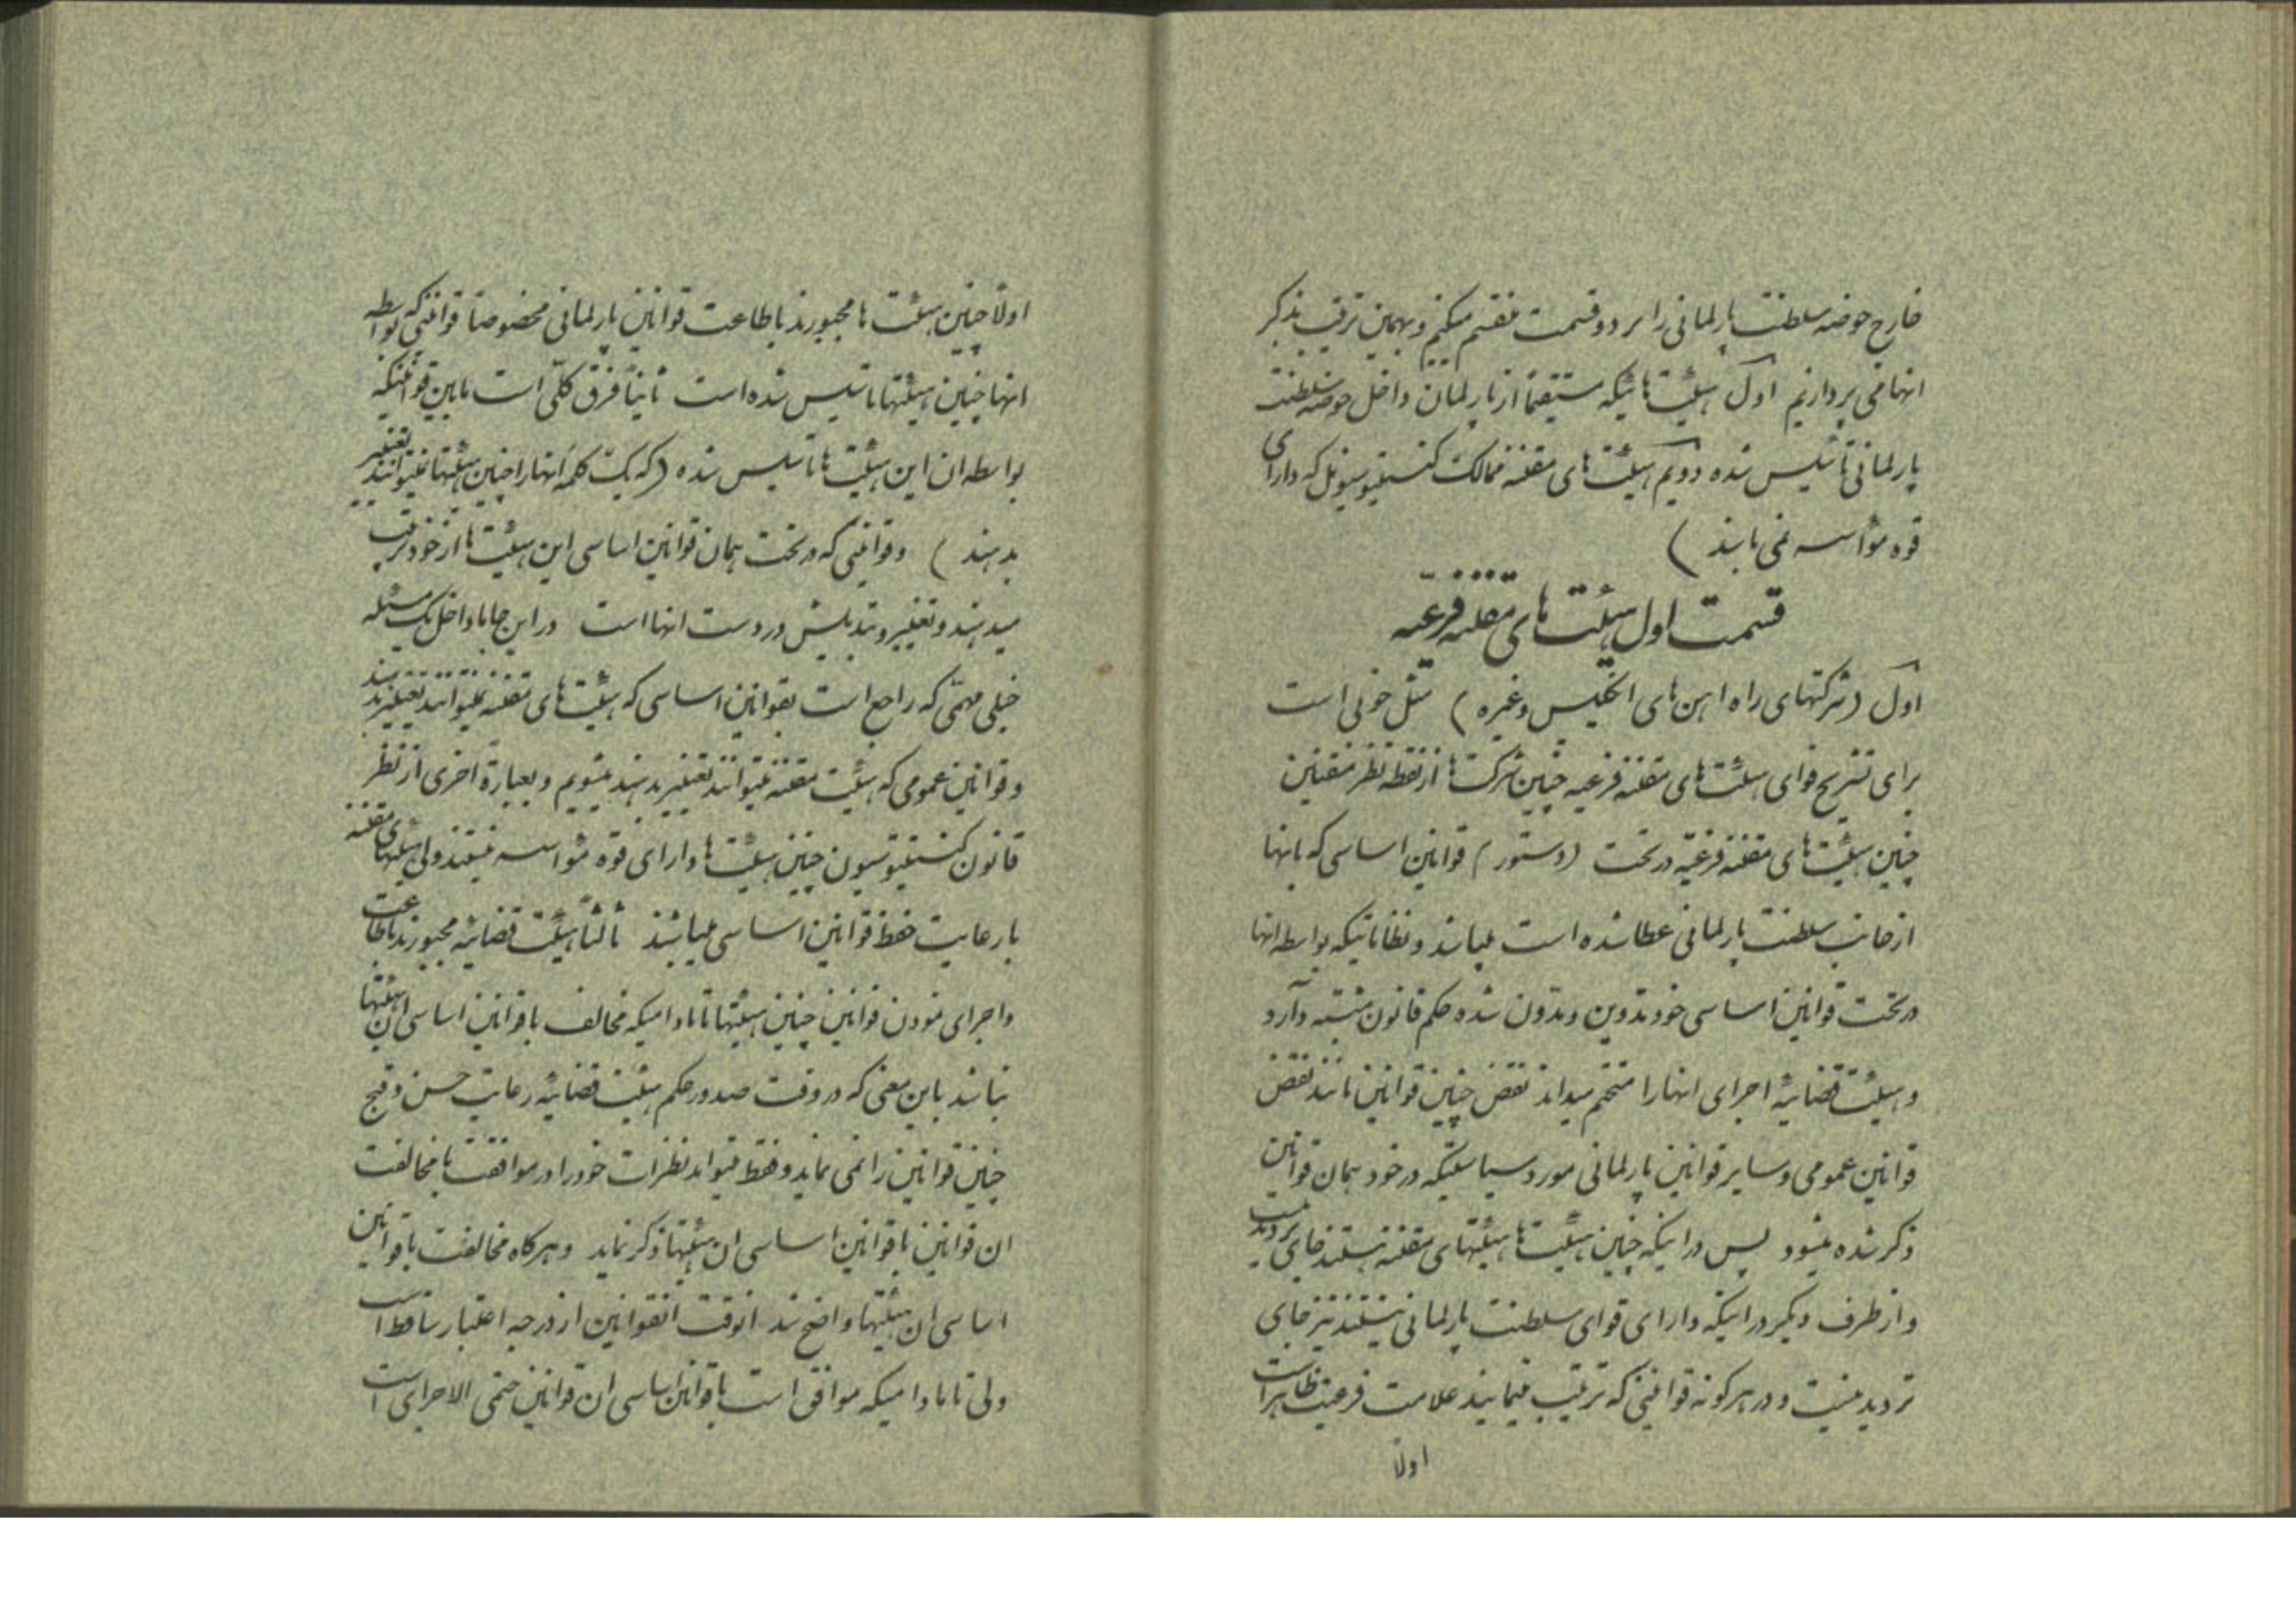 خارج حوضه سلطنت پارلمانی را بر دو قسمت منقسم میکنیم و بهمین ترتیب بذکر
انها می پردازیم اول هیئت هائیکه مستقیماً از پارلمان داخل حوضه سلطنت
پارلمانی تأسیس شده دویم هیئت های مقننه ممالک کنستیتوسیونل که دارای
قوه مؤسسه نمی باشند )
قسمت اول هیئت های مقننه فرعیه
اول ( شرکتهای راه اهن های انگلیس و غیره ) مثل خوبی است
برای تشریح قوای هیئت های مقننه فرعیه چنین شرکت ها از نقطه نظر مقننین
چنین هیئت های مقننه فرعیه در تحت ( دستور ) قوانین اساسی که بانها
از جانب سلطنت پارلمانی عطا شده است میباشد و نظاماتیکه بواسطه انها
در تحت قوانین اساسی خود تدوین و مدون شده حکم قانون
و هیئت قضائیه اجرای انها را متحتم میداند نقض چنین قوانین مانند نقض
قوانین عمومی و سایر قوانین پارلمانی مورد سیاستیکه در خود همان قوانین
ذکر شده میشود پس در اینکه چنین هیئت ها هیئتهای مقننه هستند جای تردید نیست
و از طرف دیگر در اینکه دارای قوای سلطنت پارلمانی نیستند نیز جای
تردید نیست و در هر گونه قوانینی که ترتیب مینمایند علامت فرعیت ظاهر است
اولاً
اولاً چنین هیئت ها مجبورند باطاعت قوانین پارلمانی مخصوصاً قوانینی که بواسطه
انها چنین هیئتها تاسیس شده است ثانیاً فرق کلّی است مابین قوانینیکه
بواسطه ان این هیئت ها تاسیس شده ( که یک کلمه انها را چنین هیئتها نمیتوانند تغییر
بدهند ) و قوانینی که در تحت همان قوانین اساسی این هیئت ها از خود ترتیب
میدهند و تغییر و تبدیلش در دست انها است در این جا ما داخل یک مسئله
خیلی مهمّی که راجع است بقوانین اساسی که هیئت های مقننه نمیتوانند تغییر بدهند
و قوانین عمومی که هیئت مقننه میتوانند تغییر بدهند میشویم و بعبارة اخری از نظر
قانون کنستیتوسیون چنین هیئت ها دارای قوه مؤسسه نیستند ولی هیئتهای مقننه
با رعایت حفظ قوانین اساسی میباشند ثالثاً هیئت قضائیه مجبورند باطاعت
و اجرای نمودن قوانین چنین هیئتها تا مادامیکه مخالف با قوانین اساسی ان هیئتها
نباشد باین معنی که در وقت صدور حکم هیئت قضائیه رعایت حسن و قبح
چنین قوانین را نمی نماید و فقط میتواند نظرات خود را در موافقت یا مخالفت
ان قوانین با قوانین اساسی ان هیئتها ذکر نماید و هرگاه مخالفت با قوانین
اساسی ان هیئتها واضح شد انوقت انقوانین از درجه اعتبار ساقط است
ولی تا مادامیکه موافق است با قوانین اساسی ان قوانین حتمی الاجرای است